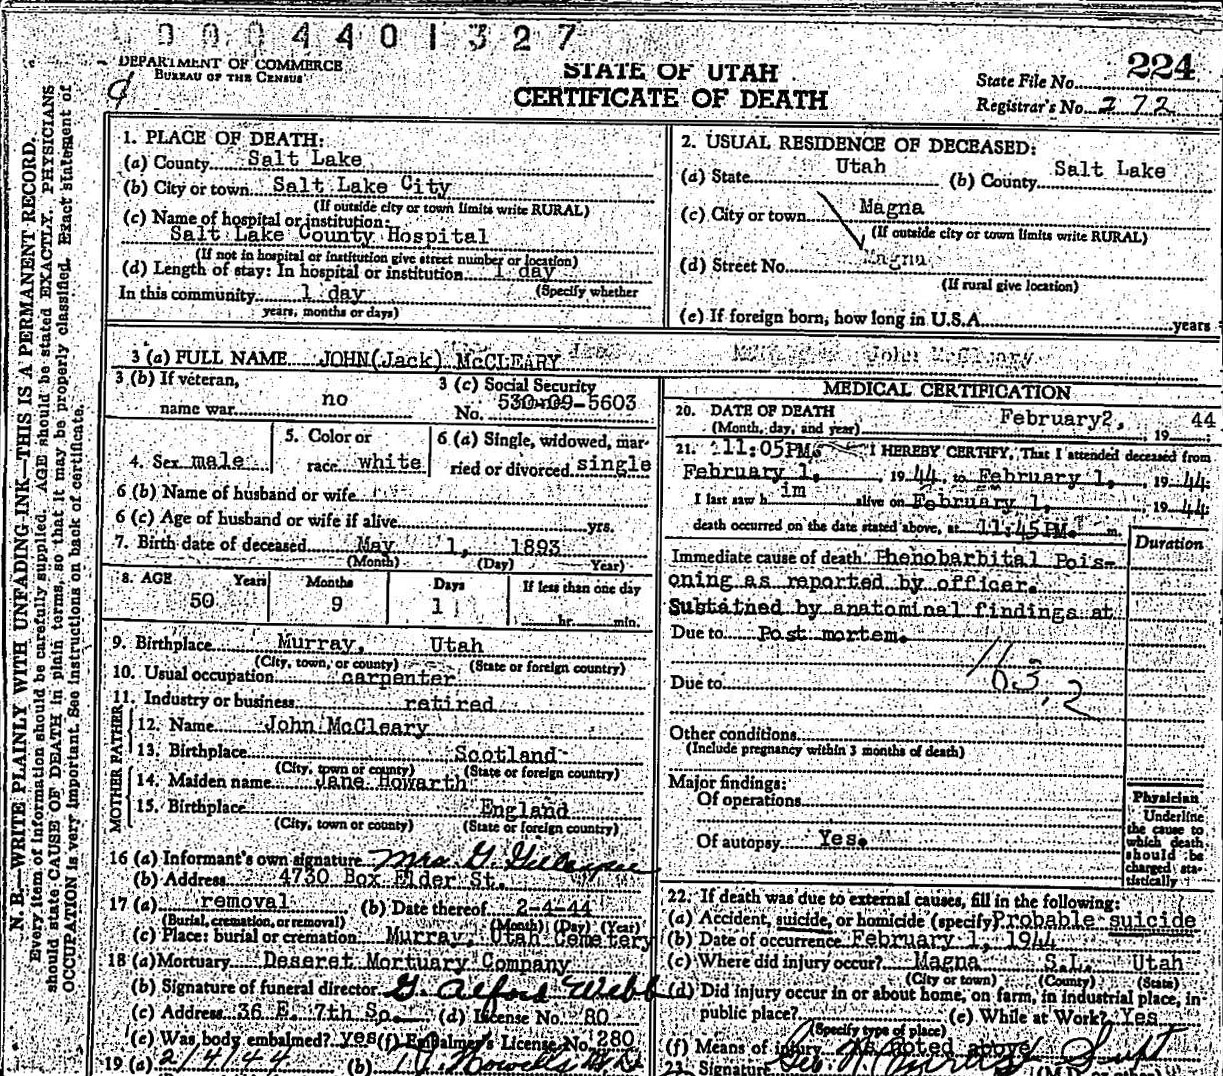 0004401327
DEPARTMENT OF COMMERCE
BUREAU OF THE CENSUS
STATE OF UTAH
CERTIFICATE OF DEATH
State File No. 224
Registrar's No. 272
N. B.—WRITE PLAINLY WITH UNFADING INK—THIS IS A PERMANENT RECORD.
Every item of information should be carefully supplied. AGE should be stated EXACTLY. PHYSICIANS
should state CAUSE OF DEATH in plain terms, so that it may be properly classified. Exact statement of
OCCUPATION is very important. See instructions on back of certificate.
1. PLACE OF DEATH:
(a) County Salt Lake
(b) City or town Salt Lake City
(If outside city or town limits write RURAL)
(c) Name of hospital or institution:
Salt Lake County Hospital
(If not in hospital or institution give street number or location)
(d) Length of stay: In hospital or institution 1 day
(Specify whether
In this community 1 day
years, months or days)
2. USUAL RESIDENCE OF DECEASED:
(a) State Utah (b) County Salt Lake
(c) City or town Magna
(If outside city or town limits write RURAL)
(d) Street No. Magna
(If rural give location)
(e) If foreign born, how long in U.S.A. years
3 (a) FULL NAME JOHN(Jack) McCLEARY John McCleary
3 (b) If veteran,
name war no
3 (c) Social Security
No. 530-09-5603
4. Sex male
5. Color or
race white
6 (a) Single, widowed, mar-
ried or divorced single
6 (b) Name of husband or wife
6 (c) Age of husband or wife if alive yrs.
7. Birth date of deceased May 1, 1893
(Month) (Day) Year)
8. AGE Years Months Days If less than one day
50 9 1 hr. min.
9. Birthplace Murray, Utah
(City, town, or county) (State or foreign country)
10. Usual occupation carpenter
11. Industry or business retired
FATHER
12. Name John McCleary
13. Birthplace Scotland
(City, town or county) (State or foreign country)
MOTHER
14. Maiden name Jane Howarth
15. Birthplace England
(City, town or county) (State or foreign country)
16 (a) Informant's own signature Mrs G.
(b) Address 4730 Box Elder St.
17 (a) removal (b) Date thereof 2-4-44
(Burial, cremation, or removal) (Month) (Day) (Year)
(c) Place: burial or cremation Murray, Utah Cemetery
18 (a) Mortuary Deseret Mortuary Company
(b) Signature of funeral director G. Alford Webb
(c) Address 36 E. 7th So. (d) License No. 80
(e) Was body embalmed? yes (f) Embalmer's License No. 280
19 (a) 2/4/44 (b)
MEDICAL CERTIFICATION
20. DATE OF DEATH February 2, 19 44
(Month, day, and year)
21. 11:05PM. I HEREBY CERTIFY, That I attended deceased from
February 1, 19 44, to February 1, 19 44.
I last saw h im alive on February 1, 19 44
death occurred on the date stated above, at 11:45PM. m.
Duration
Immediate cause of death Phenobarbital Pois-
oning as reported by officer.
Sustained by anatominal findings at
Due to Post mortem.
163.2
Due to
Other conditions
(Include pregnancy within 3 months of death)
Major findings:
Of operations
Of autopsy Yes.
Physician
Underline
the cause to
which death
should be
charged sta-
tistically
22. If death was due to external causes, fill in the following:
(a) Accident, suicide, or homicide (specify) Probable suicide
(b) Date of occurrence February 1, 1944
(c) Where did injury occur? Magna S.L. Utah
(City or town) (County) (State)
(d) Did injury occur in or about home, on farm, in industrial place, in
public place? (e) While at Work? Yes
(Specify type of place)
(f) Means of injury As noted above
23. Signature